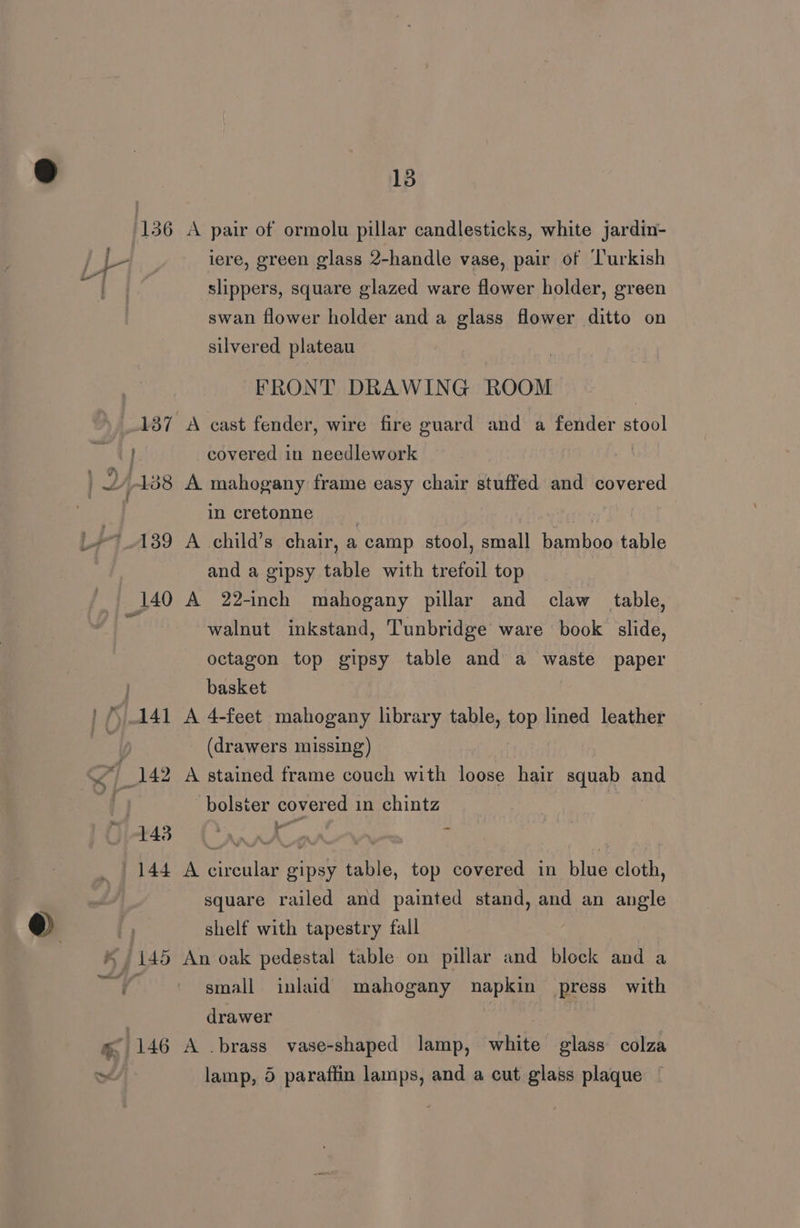 13
136 A pair of ormolu pillar candlesticks, white jardin-
iere, green glass 2-handle vase, pair of Turkish
slippers, square glazed ware flower holder, green
swan flower holder and a glass flower ditto on
silvered plateau
FRONT DRAWING ROOM
137 A cast fender, wire fire guard and a fender stool
covered in needlework
138 A mahogany frame easy chair stuffed and covered
in cretonne
139 A child's chair, a camp stool, small bamboo table
and a gipsy table with trefoil top
140 A 22-inch mahogany pillar and claw table,
walnut inkstand, Tunbridge ware book slide,
octagon top gipsy table and a waste paper
basket
141 A 4-feet mahogany library table, top lined leather
(drawers missing)
142 A stained frame couch with loose hair squab and
bolster covered in chintz
143
144 A circular gipsy table, top covered in blue cloth,
square railed and painted stand, and an angle
shelf with tapestry fall
145 An oak pedestal table on pillar and block and a
small inlaid mahogany napkin press with
drawer
146 A brass vase-shaped lamp, white glass colza
lamp, 5 paraffin lamps, and a cut glass plaque